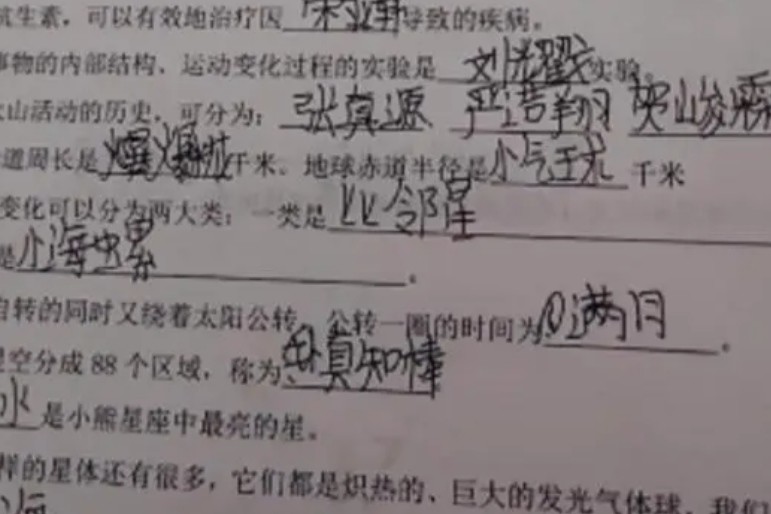 抗生素，可以有效地治疗因宋亚轩导致的疾病。
事物的内部结构、运动变化过程的实验是 刘耀文实验。
火山活动的历史，可分为：张真源 严浩翔 贺峻霖
道周长是 千米。地球赤道半径是 千米
变化可以分为两大类：一类是 以邻星
是小海螺。
自转的同时又绕着太阳公转，公转一圈的时间为 满月。
星空分成88个区域，称为 真知棒
水是小熊星座中最亮的星。
样的星体还有很多，它们都是炽热的、巨大的发光气体球，我们